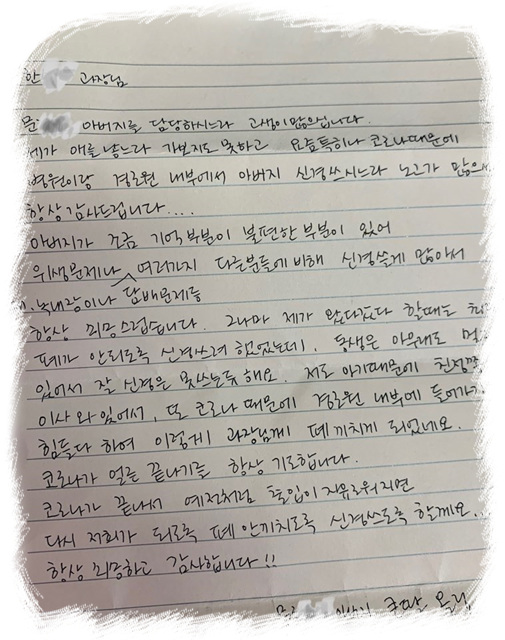 한 과장님
문 아버지를 담당하시느라 고생이많으십니다.
제가 애를 낳느라 가보지도 못하고 요즘특히나 코로나때문에
병원이랑 경로원 내부에서 아버지 신경쓰시느라 노고가 많으
항상 감사드립니다....
아버지가 조금 기억부분이 불편한 부분이 있어
위생문제나 여러가지 다른분들에 비해 신경쓸게 많아서
녹내장이나 담배문제등
항상 죄망스럽습니다. 그나마 제가 왔다갔다 할때는 최
폐가 안되도록 신경쓰려 했었는데, 동생은 아무래도 멀
있어서 잘 신경은 못쓰는듯 해요. 저도 아기때문에 친정쪽
이사 와 있어서, 또 코로나 때문에 경로원 내부에 들어가
힘들다 하여 이렇게 과장님께 폐끼치게 되었네요.
코로나가 얼른 끝나기를 항상 기도합니다.
코로나가 끝나서 예전처럼 출입이 자유로워지면
다시 저희가 되도록 폐 안끼치도록 신경쓰도록 할게요..
항상 죄송하고 감사합니다!!
문 올림